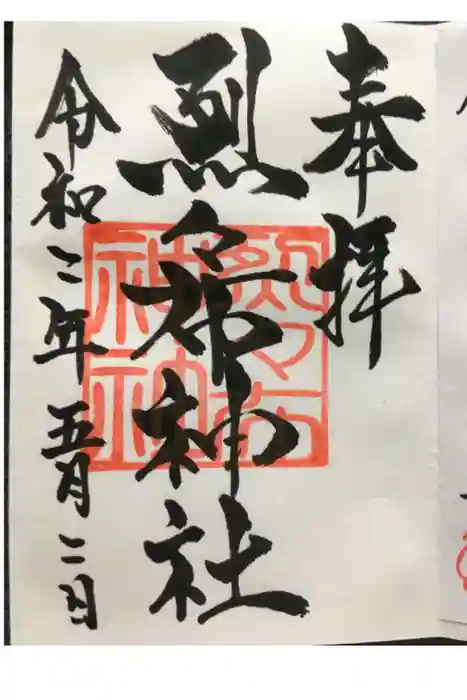 奉拝
烈々布神社
令和三年五月二日
烈々布
神社